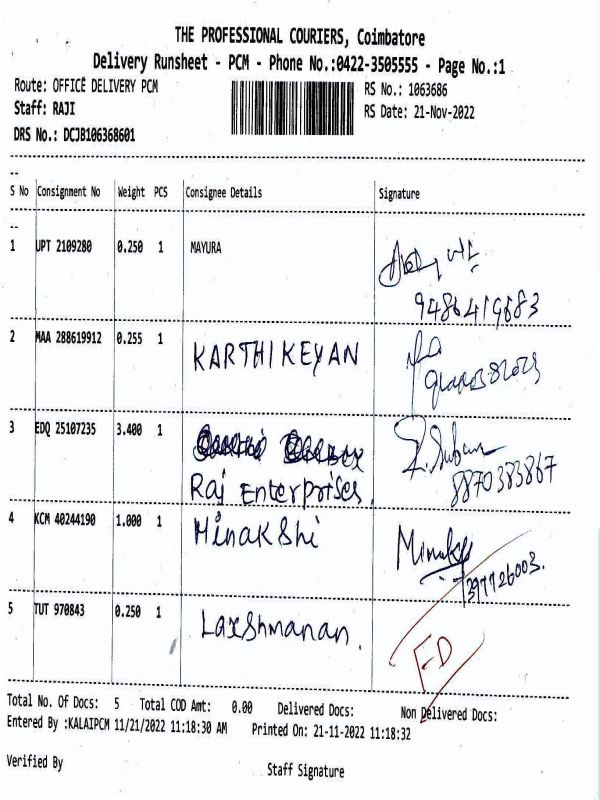 THE PROFESSIONAL COURIERS, Coimbatore
Delivery Runsheet - PCM - Phone No.:0422-3505555 - Page No.:1
Route: OFFICE DELIVERY PCM RS No.: 1063686
Staff: RAJI RS Date: 21-Nov-2022
DRS No.: DCJB106368601
--
S No Consignment No Weight PCS Consignee Details Signature
--
1 UPT 2109280 0.250 1 MAYURA
9486419683
2 MAA 288619912 0.255 1 KARTHIKEYAN
3 EDQ 25107235 3.400 1
Raj Enterprises 8870383867
4 KCM 40244190 1.000 1 Minakshi
5 TUT 970843 0.250 1 Laxshmanan.
Total No. Of Docs: 5 Total COD Amt: 0.00 Delivered Docs: Non Delivered Docs:
Entered By :KALAIPCM 11/21/2022 11:18:30 AM Printed On: 21-11-2022 11:18:32
Verified By Staff Signature